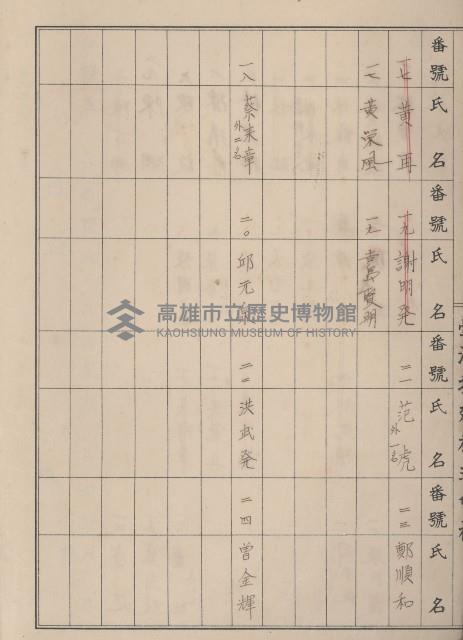 番號 氏名 番號 氏名 番號 氏名 番號 氏名
十七 黃再
十九 謝明発
二一 范虎 外一名
二三 鄭順和
一七 黃栄風
一九 賢明
一八 蔡末章 外二名
二〇 邱元
二二 洪武発
二四 曾金輝
高雄市立歷史博物館
KAOHSIUNG MUSEUM OF HISTORY